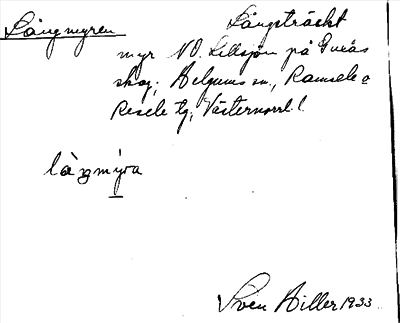 Långmyren
Långsträckt
myr NO. Lillsjön på
skog; Helgums sn, Ramsele o
Resele tg, Västernorrl. l.
làŋmýra
Sven Hiller 1933